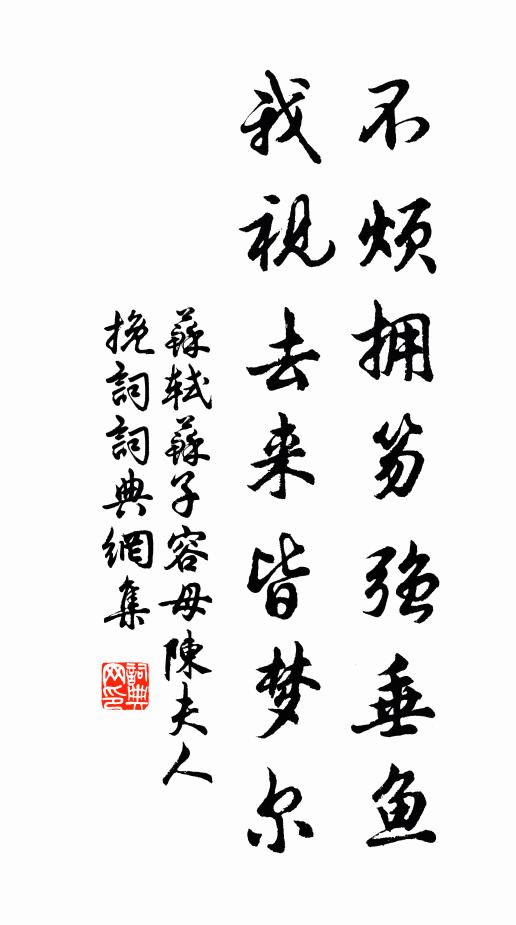 不烦拥笏强垂鱼
我视去来皆梦尔
蘇轼蘇子容母陳夫人
挽詞詞典網集
詞典网印